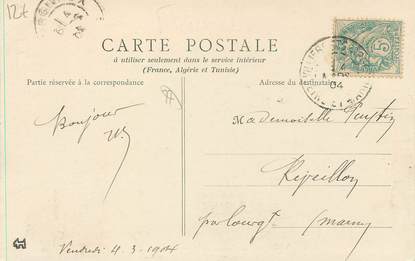 12t
CARTE POSTALE
à utiliser seulement dans le service intérieur
(France, Algérie et Tunisie)
Partie réservée à la correspondance
Adresse du destinataire
5
04
Bonjour
Mademoiselle
Réveillon
par (Marne)
Vendredi 4.3.1904